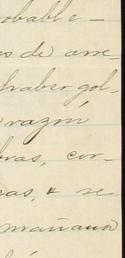 robable –
os de arre-
haber gol-
razón
bras, cor-
nas, & se
mañana